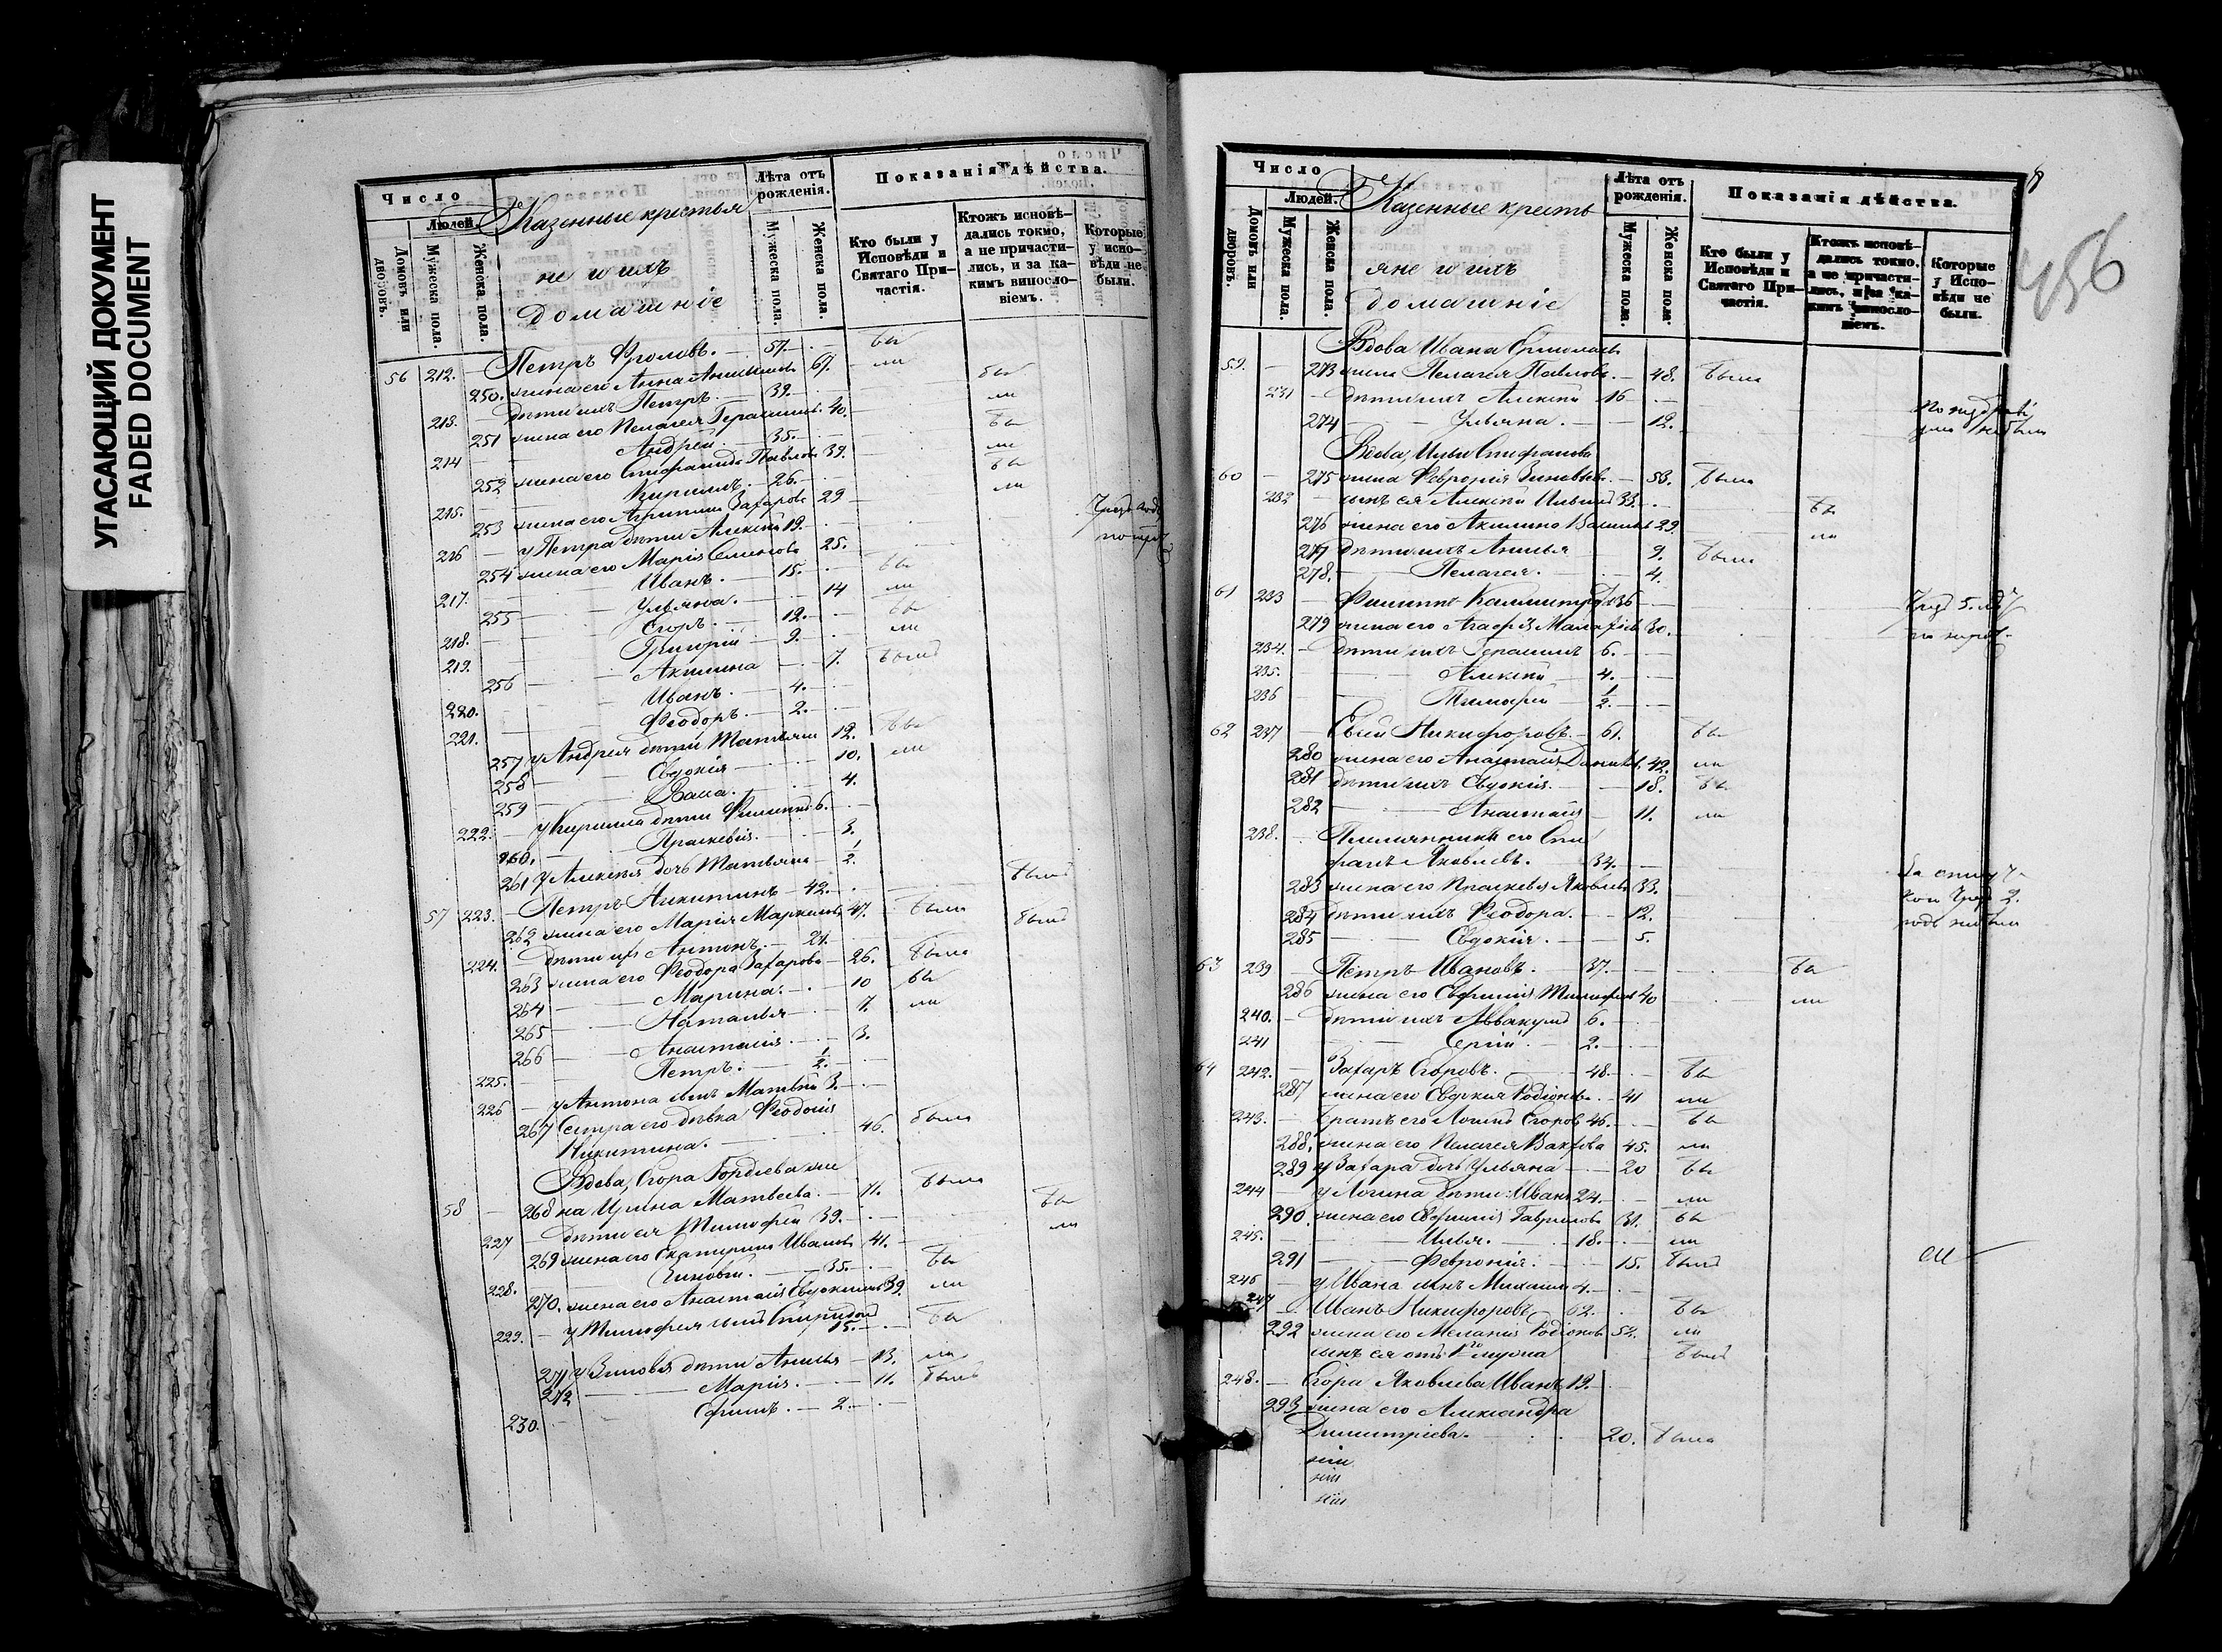 УГАСАЮЩИЙ ДОКУМЕНТ
FADED DOCUMENT
Число
Людей.
Домовъ или дворовъ.
Мужеска пола.
Женска пола.
Казенные крестья
не и ихъ
домашніе
Лѣта отъ рожденія.
Мужеска пола.
Женска пола.
Показанія дѣйства.
Кто были у Исповѣди и Святаго При-частія.
Ктожъ исповѣ-дались токмо, а не причасти-лись, и за ка-кимъ винословіемъ.
Которые у испо-вѣди не были.
56 212. — Петръ Фроловъ. — 57. — бы
250. жена его Анна 61. — ли
213. — дѣти ихъ Петръ. — 39. — бы
251 жена его Пелагея Герасимов. 40. — ли
214 — Андрей. — 35. — бы
252 жена его Степанида Павлова 39. ли
215. — Кириллъ. — 26. — бы
253 жена его Агрипина Захарова 29 — ли
216 — у Петра дѣти Алексѣй 19.
254 жена его Марія Семенова 25.
217. — Иванъ. — 15. — бы
255 — Ульяна. — 14 ли
218. — Егоръ. — 12. — бы
219. — Григорій — 9. — ли
256 — Акилина — 7. была
220. — Иванъ. — 4. —
221. — Феодоръ. — 2. —
257 у Андрея дѣти Татьяна 12. бы
258 — Евдокія — 10. ли
259 — Васса. — 4.
222. — у Кирилла дѣти Филиппъ 6. —
260. — Праскевія. — 3.
261 у Алексѣя дочь Татьяна — 1/2.
57 223. — Петръ Никитинъ — 42. — былъ
262 жена его Марія Маркелова 47. — была
224. — дѣти ихъ Антонъ. — 21. — былъ
263 жена его Феодора Захарова — 26. была
264 — Марина. — 10 бы
265 — Наталья — 7. ли
266 — Анастасія. — 3.
225. — Петръ. — 1/2. —
226 — у Антона сынъ Матвѣй 3. —
267 Сестра его дѣвка Феодосія
Никитина. — 46. была
Вдова, Егора Гордѣева же
58 — 268 на Ирина Матвеева. — 71. была
227 — дѣти ея Тимофей 39. — бы
269 жена его Екатерина Иванова 41. — ли
228. — Зиновій. — 35. — бы
270. жена его Анастасія Евдокимова 39. ли
229. — у Тимофея сынъ Спиридонъ
15. — бы
271 у Зиновья дѣти Анисья — 13. ли
272 — Марія. — 11. была
230. — Ефимъ. — 2. —
456
Число
Людей.
Домовъ или дворовъ.
Мужеска пола.
Женска пола.
Казенные кресть
яне и ихъ
домашніе
Лѣта отъ рожденія.
Мужеска пола.
Женска пола.
Показанія дѣйства.
Кто были у Исповѣди и Святаго При-частія.
Ктожъ исповѣ-дались токмо, а не причасти-лись, и за ка-кимъ винословіемъ.
Которые у Испо-вѣди не были.
Вдова Ивана Ермолаева
59. — 273 жена Пелагея Павлова. — 48. была
231 — дѣти ихъ Алексѣй 16 —
274 — Ульяна. — 12.
Вдова, Ильи Стефанова
60 — 275 жена Феврония Зиновьева. — 58. была
232 — сынъ ея Алексѣй Ильинъ 33. — бы
276 жена его Акилина 29. ли
277 дѣти ихъ Анисья 9. была
278. — Пелагея. — 4.
61 233 — Филиппъ 36 —
279 жена его Агафія 30.
234. — дѣти ихъ Герасимъ 6. —
235. — Алексѣй — 4. —
236 — Тимофей — 1/2. —
62 237 — Евсей Никифоровъ. — 61. бы
280 жена его Анастасія Данилова 42. ли
281 дѣти ихъ Евдокія. — 18. бы
282 — Анастасія — 11. ли
238. — Племянникъ его Сте
фанъ Яковлевъ. — 34. —
283 жена его Праскевія Яковлева 33.
284 дѣти ихъ Феодора. — 12.
285 — Евдокія. — 5.
63 239 — Петръ Ивановъ. — 37. — бы
286 жена его Евфимія Тимофеева 40 ли
240. — дѣти ихъ Аввакумъ 6. —
241 — Сергій. — 2. —
64 242. — Захаръ Егоровъ. — 48. — бы
287 жена его Евдокія Родіонова. — 41 ли
243. — братъ его Логинъ Егоровъ 46. — бы
288. жена его Пелагея 45. ли
289 у Захара дочь Ульяна — 20 бы
244 — у Логина дѣти: Иванъ 24. — ли
290. жена его Евфимія Гаврилова 31. бы
245. — Илья. — 18. — ли
291 — Февронія. — 15. была
246 — у Ивана сынъ Михаилъ 4. —
247 — Иванъ Никифоровъ 62. — бы
292 жена его Меланія Родіонова 52. ли
сынъ ея отъ 1го мужа былъ
248. — Егора Яковлева Иванъ 19. —
293 жена его Александра
Димитріева. — 20. была